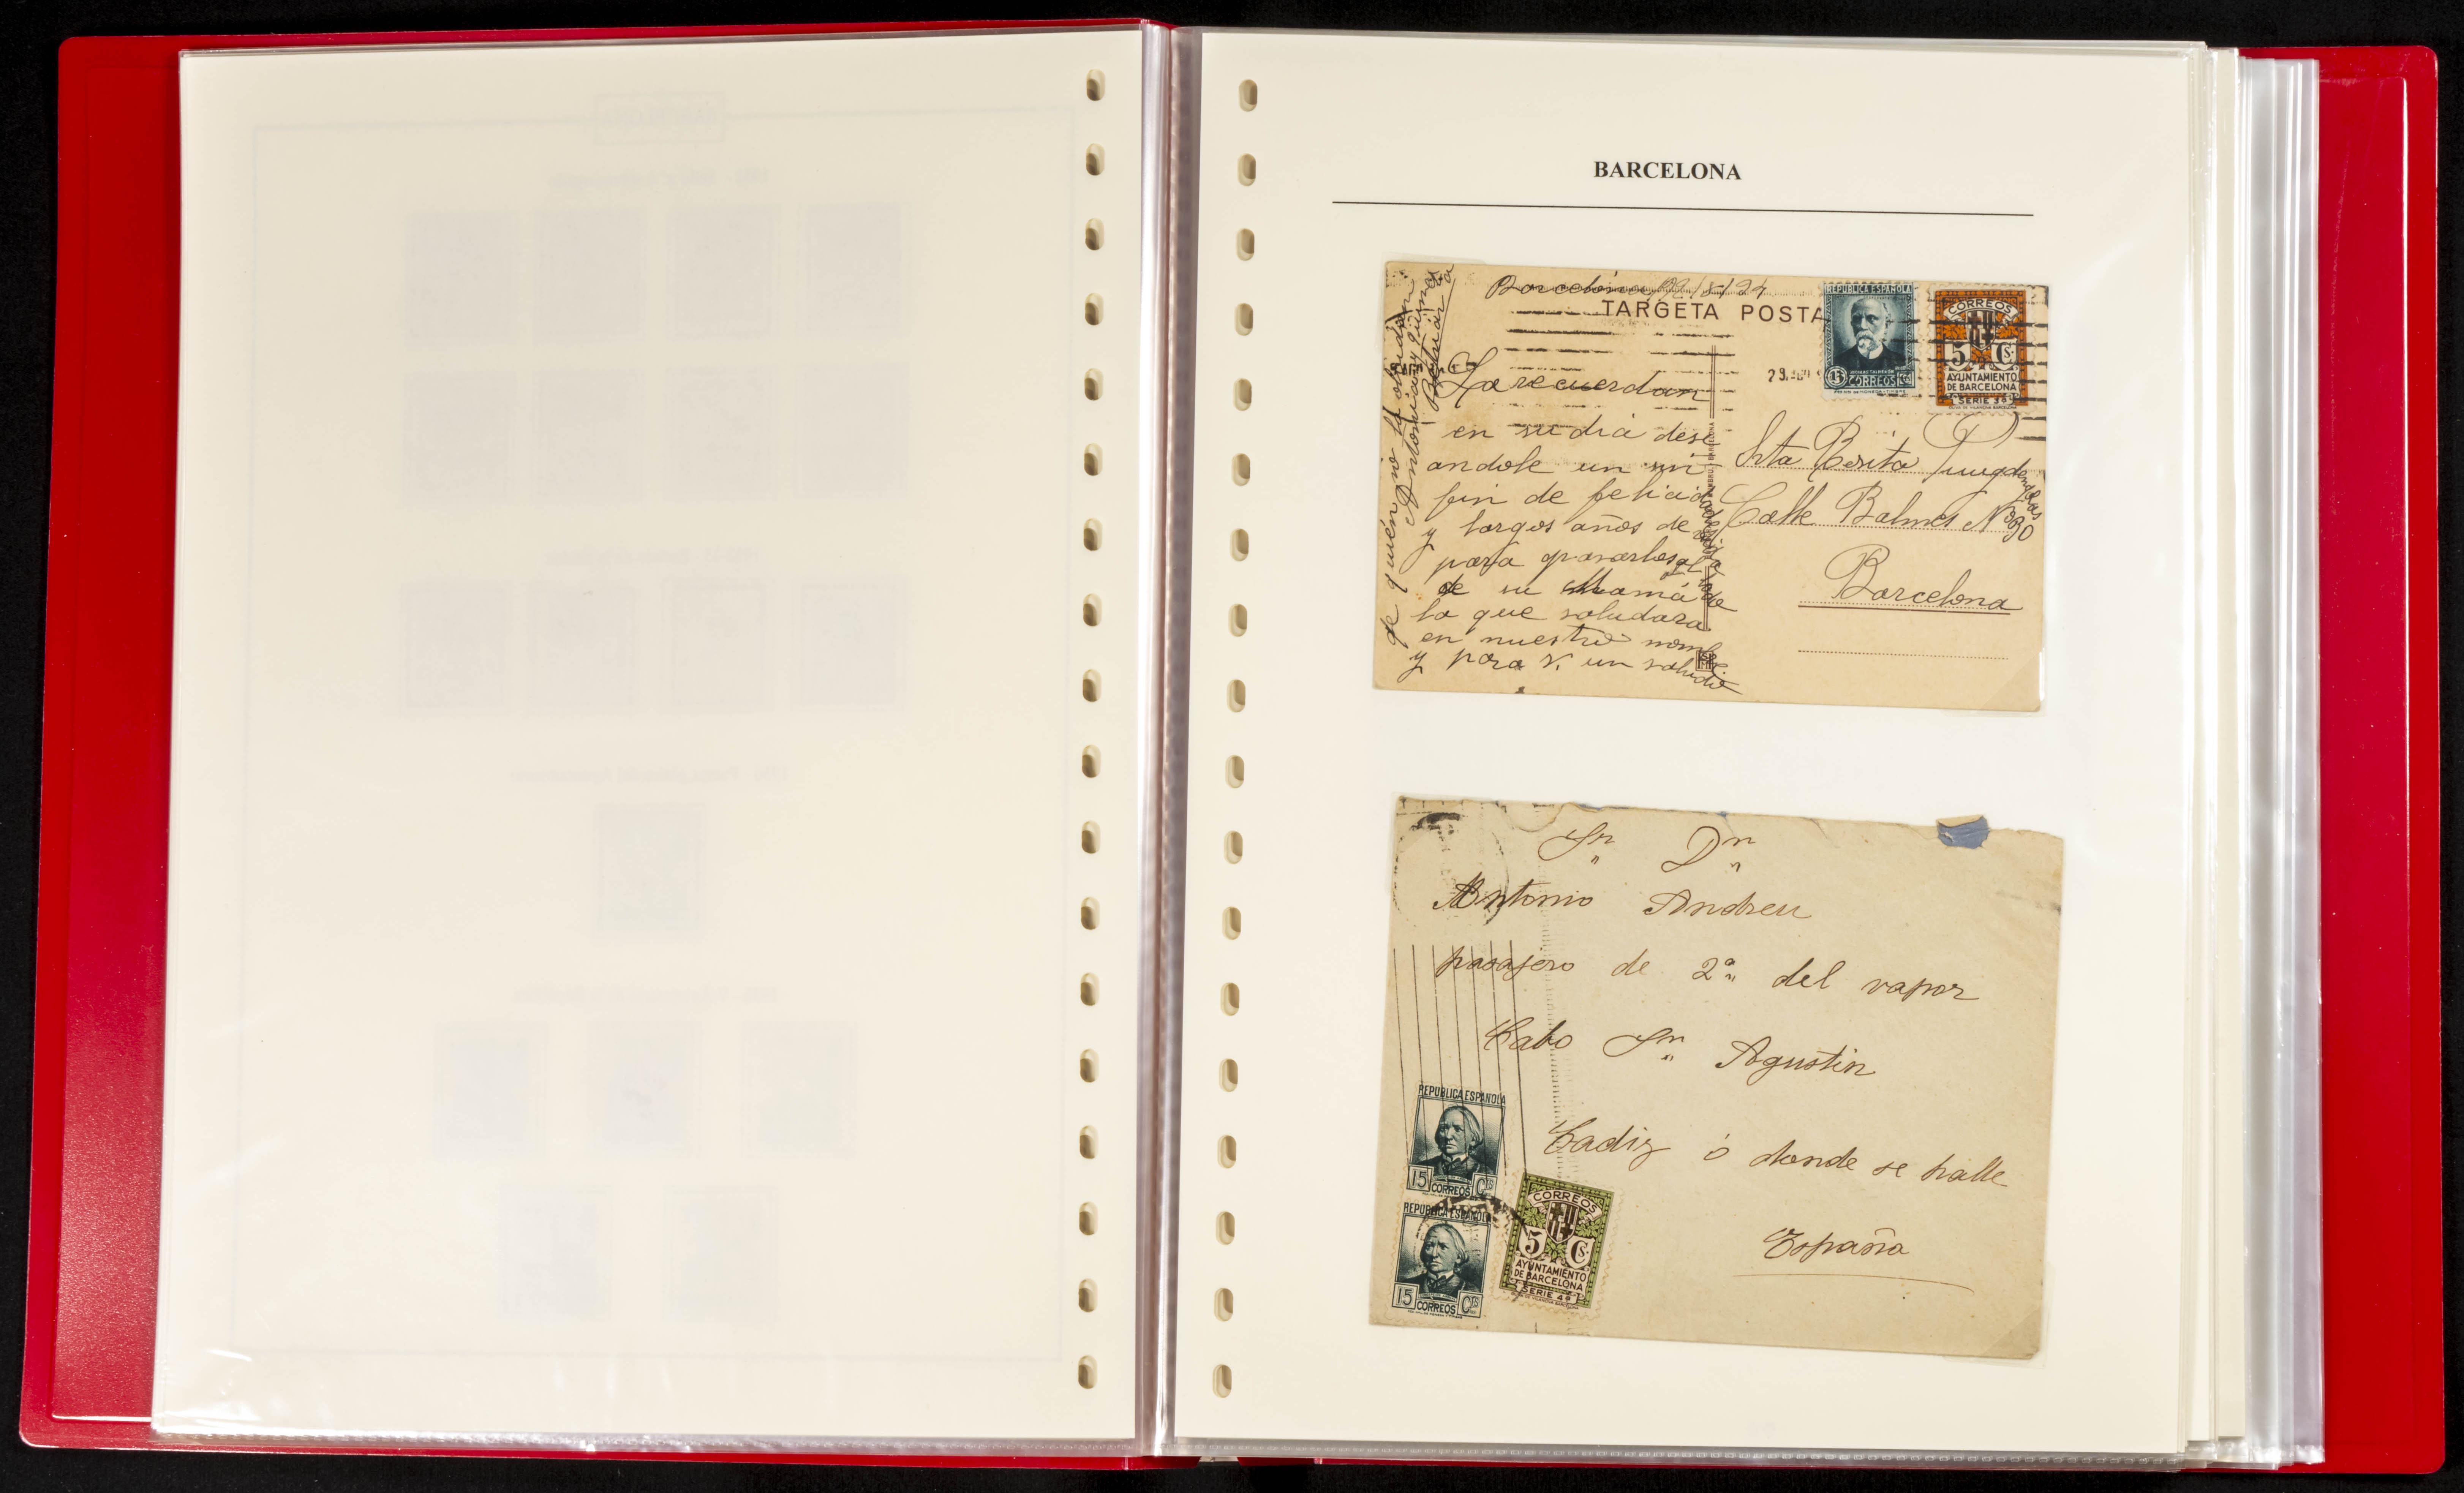 BARCELONA
Barcelona
TARGETA POSTA
REPUBLICA ESPAÑOLA
15 CORREOS Cts
CORREOS
5 Cs.
AYUNTAMIENTO
DE BARCELONA
SERIE 3ª
La recuerdan
en su dia dese
andole un sin
fin de felicidades
y largos años de vida
para pasarlos al lado
de su Mamá de
la que saludara
en nuestro nombre
y para V. un saludo
de quién no la olvidan
Srta Rosita
Calle Balmes Nº 30
Barcelona
Sr. Dn.
Antonio Andreu
pasajero de 2ª del vapor
Cabo Sn. Agustin
Cadiz ó donde se halle
España
REPUBLICA ESPAÑOLA
15 CORREOS Cts
REPUBLICA ESPAÑOLA
15 CORREOS Cts
CORREOS
5 Cs.
AYUNTAMIENTO
DE BARCELONA
SERIE 4ª